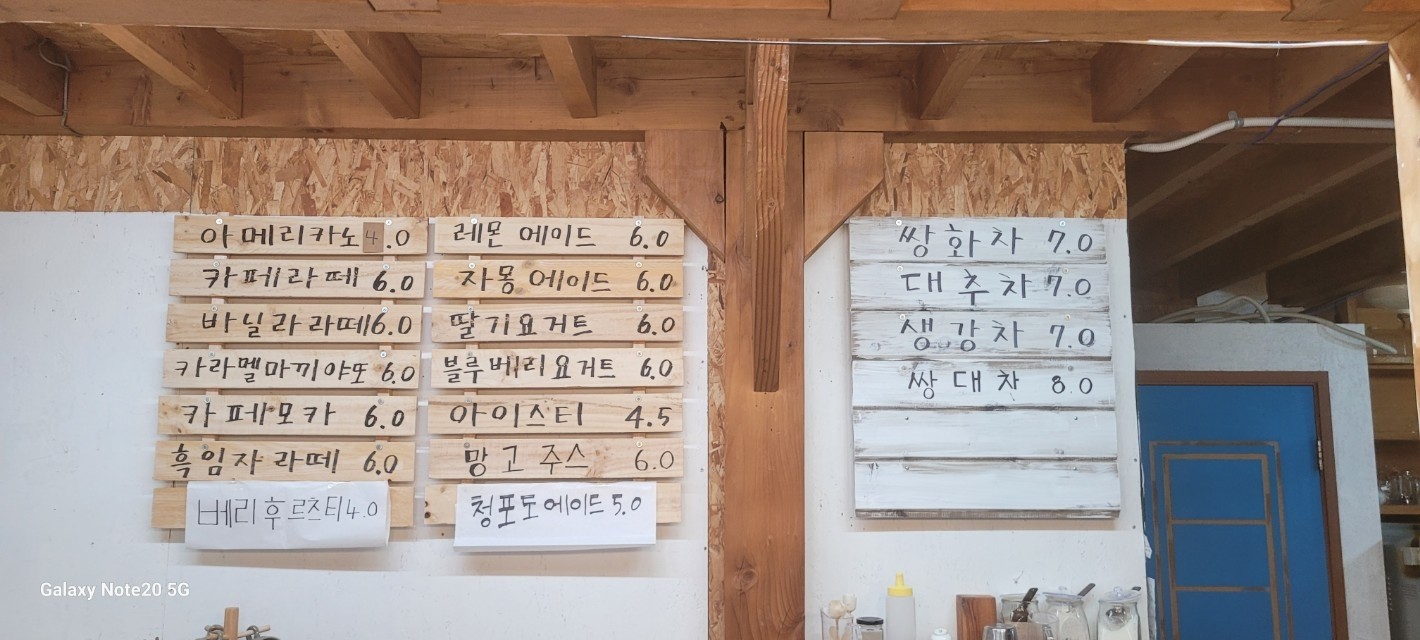 아메리카노 4.0
카페라떼 6.0
바닐라라떼 6.0
카라멜마끼야또 6.0
카페모카 6.0
흑임자라떼 6.0
베리후르츠티 4.0
레몬에이드 6.0
자몽에이드 6.0
딸기요거트 6.0
블루베리요거트 6.0
아이스티 4.5
망고주스 6.0
청포도에이드 5.0
쌍화차 7.0
대추차 7.0
생강차 7.0
쌍대차 8.0
Galaxy Note20 5G